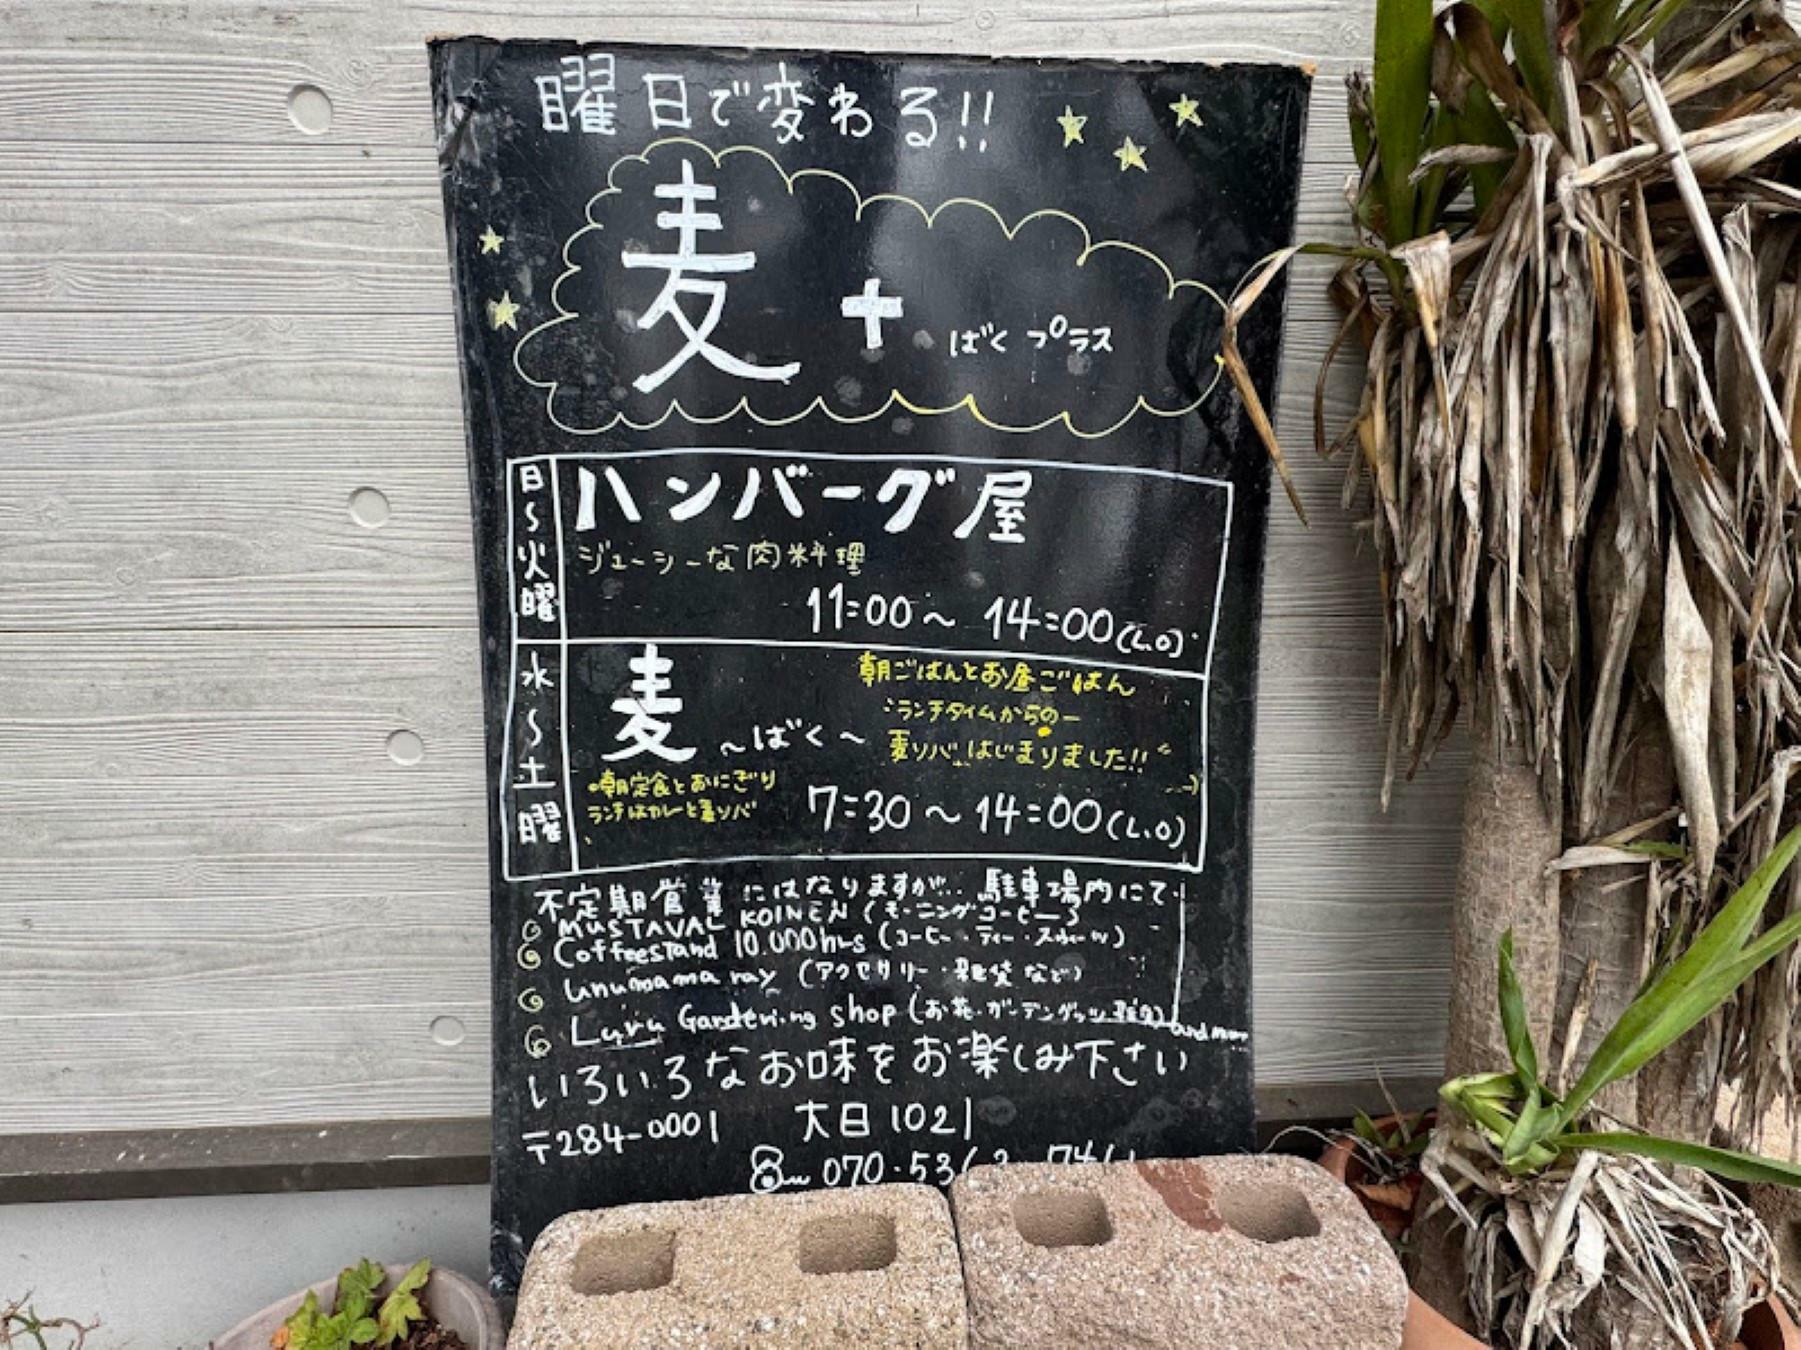 曜日で変わる!!
麦 + ばくプラス
日〜火曜
ハンバーグ屋
ジューシーな肉料理
11:00〜14:00(L.O)
水〜土曜
麦 〜ばく〜
朝ごはんとお昼ごはん
ランチタイムからのー
麦ソバはじまりました!!
朝定食とおにぎり
ランチはカレーと麦ソバ
7:30〜14:00(L.O)
不定期営業にはなりますが.. 駐車場内にて
MUSTAVAL KOINEN (モーニングコーヒー)
Coffeestand 10.000hrs (コーヒー・ティー・スウィーツ)
unumama ray (アクセサリー・雑貨など)
Luru Gardening shop (お花・ガーデングッツ・雑貨) and more
いろいろなお味をお楽しみ下さい
〒284-0001 大日1021
070・53